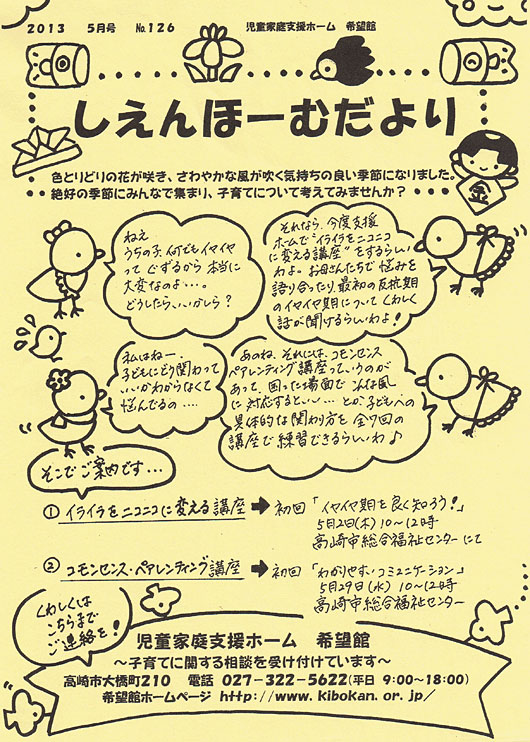 2013 5月号 No.126 児童家庭支援ホーム 希望館
しえんほーむだより
色とりどりの花が咲き、さわやかな風が吹く気持ちの良い季節になりました。
絶好の季節にみんなで集まり、子育てについて考えてみませんか？
金
ねえ
うちの子、何でもイヤイヤ
って ぐずるから 本当に
大変なのよ…。
どうしたら、いいかしら？
それなら、今度支援
ホームで“イライラをニコニコ
に変える講座”をするらしい
わよ。お母さんたちで 悩みを
語り合ったり、最初の反抗期
のイヤイヤ期について くわしく
話が聞けるらしいわよ！
私はねー、
子どもにどう関わって
いいかわからなくて
悩んでるの…
あのね、それには、コモンセンス
ペアレンティング講座っていうのが
あって、困った場面で こんな風
に対応するといい…とか、子どもへの
具体的な関わり方を 全7回の
講座で練習できるらしいわ♪
そこで ご案内です…
① イライラをニコニコに変える講座 ➡ 初回「イヤイヤ期を良く知ろう！」
5月2日(木) 10～12時
高崎市総合福祉センターにて
② コモンセンス・ペアレンティング講座 ➡ 初回「わかりやすいコミュニケーション」
5月29日(水) 10～12時
高崎市総合福祉センター
くわしくは
こちらまで
ご連絡を！
児童家庭支援ホーム 希望館
～子育てに関する相談を受け付けています～
高崎市大橋町210 電話 027-322-5622(平日 9:00～18:00)
希望館ホームページ http://www.kibokan.or.jp/